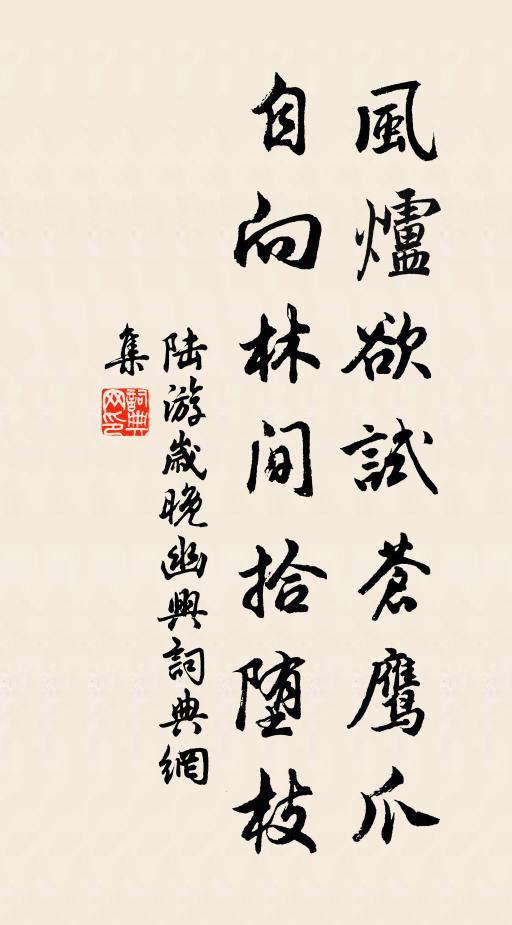 風爐欲試蒼鷹爪
自向林間拾墮枝
陆游歲晚幽興詞典網
集
詞典
网印